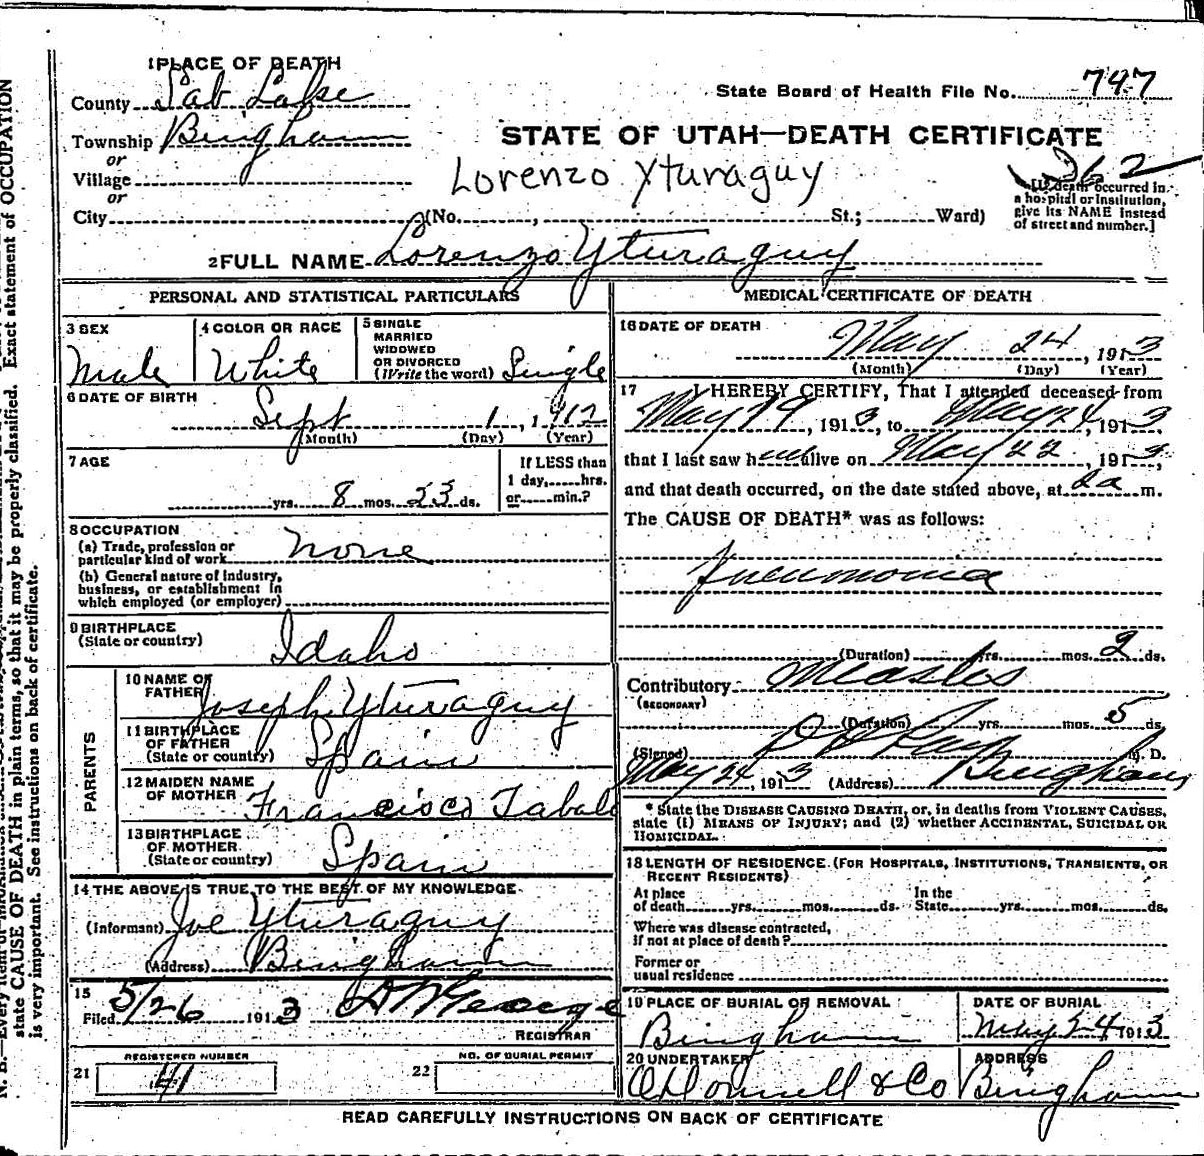 1 PLACE OF DEATH
County Salt Lake
State Board of Health File No. 747
Township Bingham
STATE OF UTAH—DEATH CERTIFICATE
or
Village
Lorenzo Yturaguy
262
or
City (No. , St.; Ward)
[If death occurred in a hospital or institution, give its NAME instead of street and number.]
2 FULL NAME Lorenzo Yturaguy
PERSONAL AND STATISTICAL PARTICULARS
3 SEX
Male
4 COLOR OR RACE
White
5 SINGLE
MARRIED
WIDOWED
OR DIVORCED
(Write the word) Single
6 DATE OF BIRTH
Sept 1, 1912
(Month) (Day) (Year)
7 AGE
yrs. 8 mos. 23 ds.
If LESS than
1 day, hrs.
or min.?
8 OCCUPATION
(a) Trade, profession or
particular kind of work none
(b) General nature of industry,
business, or establishment in
which employed (or employer)
9 BIRTHPLACE
(State or country) Idaho
PARENTS
10 NAME OF
FATHER Joseph Yturaguy
11 BIRTHPLACE
OF FATHER
(State or country) Spain
12 MAIDEN NAME
OF MOTHER Francisco Tabalo
13 BIRTHPLACE
OF MOTHER
(State or country) Spain
14 THE ABOVE IS TRUE TO THE BEST OF MY KNOWLEDGE
(Informant) Joe Yturaguy
(Address) Bingham
15
Filed 5/26 1913 D W George
REGISTRAR
REGISTERED NUMBER
21 41
NO. OF BURIAL PERMIT
22
MEDICAL CERTIFICATE OF DEATH
16 DATE OF DEATH
May 24, 1913
(Month) (Day) (Year)
17 I HEREBY CERTIFY, That I attended deceased from
May 19, 1913, to May 24, 1913
that I last saw h alive on May 22, 1913,
and that death occurred, on the date stated above, at 2a m.
The CAUSE OF DEATH* was as follows:
Pneumonia
(Duration) yrs. mos. 2 ds.
Contributory Measles
(SECONDARY)
(Duration) yrs. mos. 5 ds.
(Signed) M. D.
May 24, 1913 (Address) Bingham
* State the DISEASE CAUSING DEATH, or, in deaths from VIOLENT CAUSES,
state (1) MEANS OF INJURY; and (2) whether ACCIDENTAL, SUICIDAL OR
HOMICIDAL.
18 LENGTH OF RESIDENCE (FOR HOSPITALS, INSTITUTIONS, TRANSIENTS, OR
RECENT RESIDENTS)
At place
of death yrs. mos. ds.
In the
State yrs. mos. ds.
Where was disease contracted,
if not at place of death?
Former or
usual residence
19 PLACE OF BURIAL OR REMOVAL
Bingham
DATE OF BURIAL
May 24 1913
20 UNDERTAKER
O'Donnell & Co
ADDRESS
Bingham
READ CAREFULLY INSTRUCTIONS ON BACK OF CERTIFICATE
state CAUSE OF DEATH in plain terms, so that it may be properly classified. Exact statement of OCCUPATION
is very important. See instructions on back of certificate.